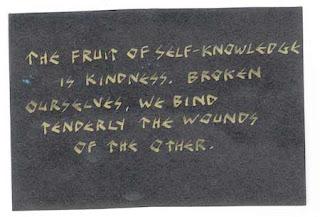 THE FRUIT OF SELF-KNOWLEDGE
IS KINDNESS. BROKEN
OURSELVES, WE BIND
TENDERLY THE WOUNDS
OF THE OTHER.